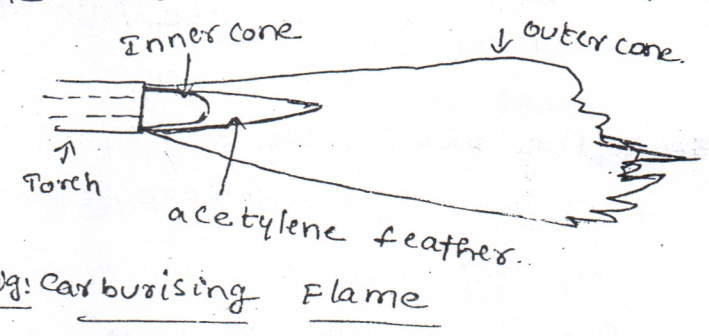 Inner cone
outer cone.
Torch
acetylene feather.
g: Carburising Flame